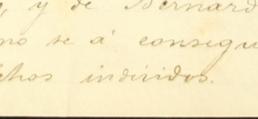 , y de Bernard
no se á consegu
chos indiridos.